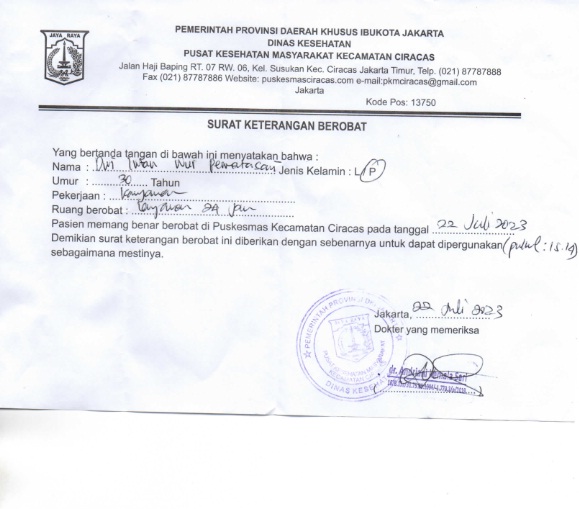 JAYA RAYA
PEMERINTAH PROVINSI DAERAH KHUSUS IBUKOTA JAKARTA
DINAS KESEHATAN
PUSAT KESEHATAN MASYARAKAT KECAMATAN CIRACAS
Jalan Haji Baping RT. 07 RW. 06, Kel. Susukan Kec. Ciracas Jakarta Timur, Telp. (021) 87787888
Fax (021) 87787886 Website: puskesmasciracas.com e-mail:pkmciracas@gmail.com
Jakarta
Kode Pos: 13750
SURAT KETERANGAN BEROBAT
Yang bertanda tangan di bawah ini menyatakan bahwa :
Nama : Dwi Iwan Nur Permatasari Jenis Kelamin : L/P
Umur : 30 Tahun
Pekerjaan : Karyawan
Ruang berobat : Layanan 24 jam
Pasien memang benar berobat di Puskesmas Kecamatan Ciracas pada tanggal 22 Juli 2023
Demikian surat keterangan berobat ini diberikan dengan sebenarnya untuk dapat dipergunakan (pukul : 15.19)
sebagaimana mestinya.
Jakarta, 22 Juli 2023
Dokter yang memeriksa
PEMERINTAH PROVINSI
DINAS KESEHATAN
dr.